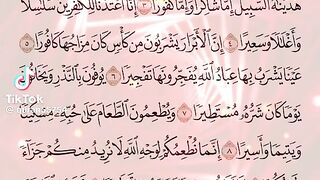 هَدَيْنَٰهُ ٱلسَّبِيلَ إِمَّا شَاكِرًا وَإِمَّا كَفُورًا ٣ إِنَّآ أَعْتَدْنَا لِلْكَٰفِرِينَ سَلَٰسِلَا
وَأَغْلَٰلًا وَسَعِيرًا ٤ إِنَّ ٱلْأَبْرَارَ يَشْرَبُونَ مِن كَأْسٍ كَانَ مِزَاجُهَا كَافُورًا ٥
عَيْنًا يَشْرَبُ بِهَا عِبَادُ ٱللَّهِ يُفَجِّرُونَهَا تَفْجِيرًا ٦ يُوفُونَ بِٱلنَّذْرِ وَيَخَافُونَ
يَوْمًا كَانَ شَرُّهُۥ مُسْتَطِيرًا ٧ وَيُطْعِمُونَ ٱلطَّعَامَ عَلَىٰ حُبِّهِۦ مِسْكِينًا
وَيَتِيمًا وَأَسِيرًا ٨ إِنَّمَا نُطْعِمُكُمْ لِوَجْهِ ٱللَّهِ لَا نُرِيدُ مِنكُمْ جَزَآءً
TikTok